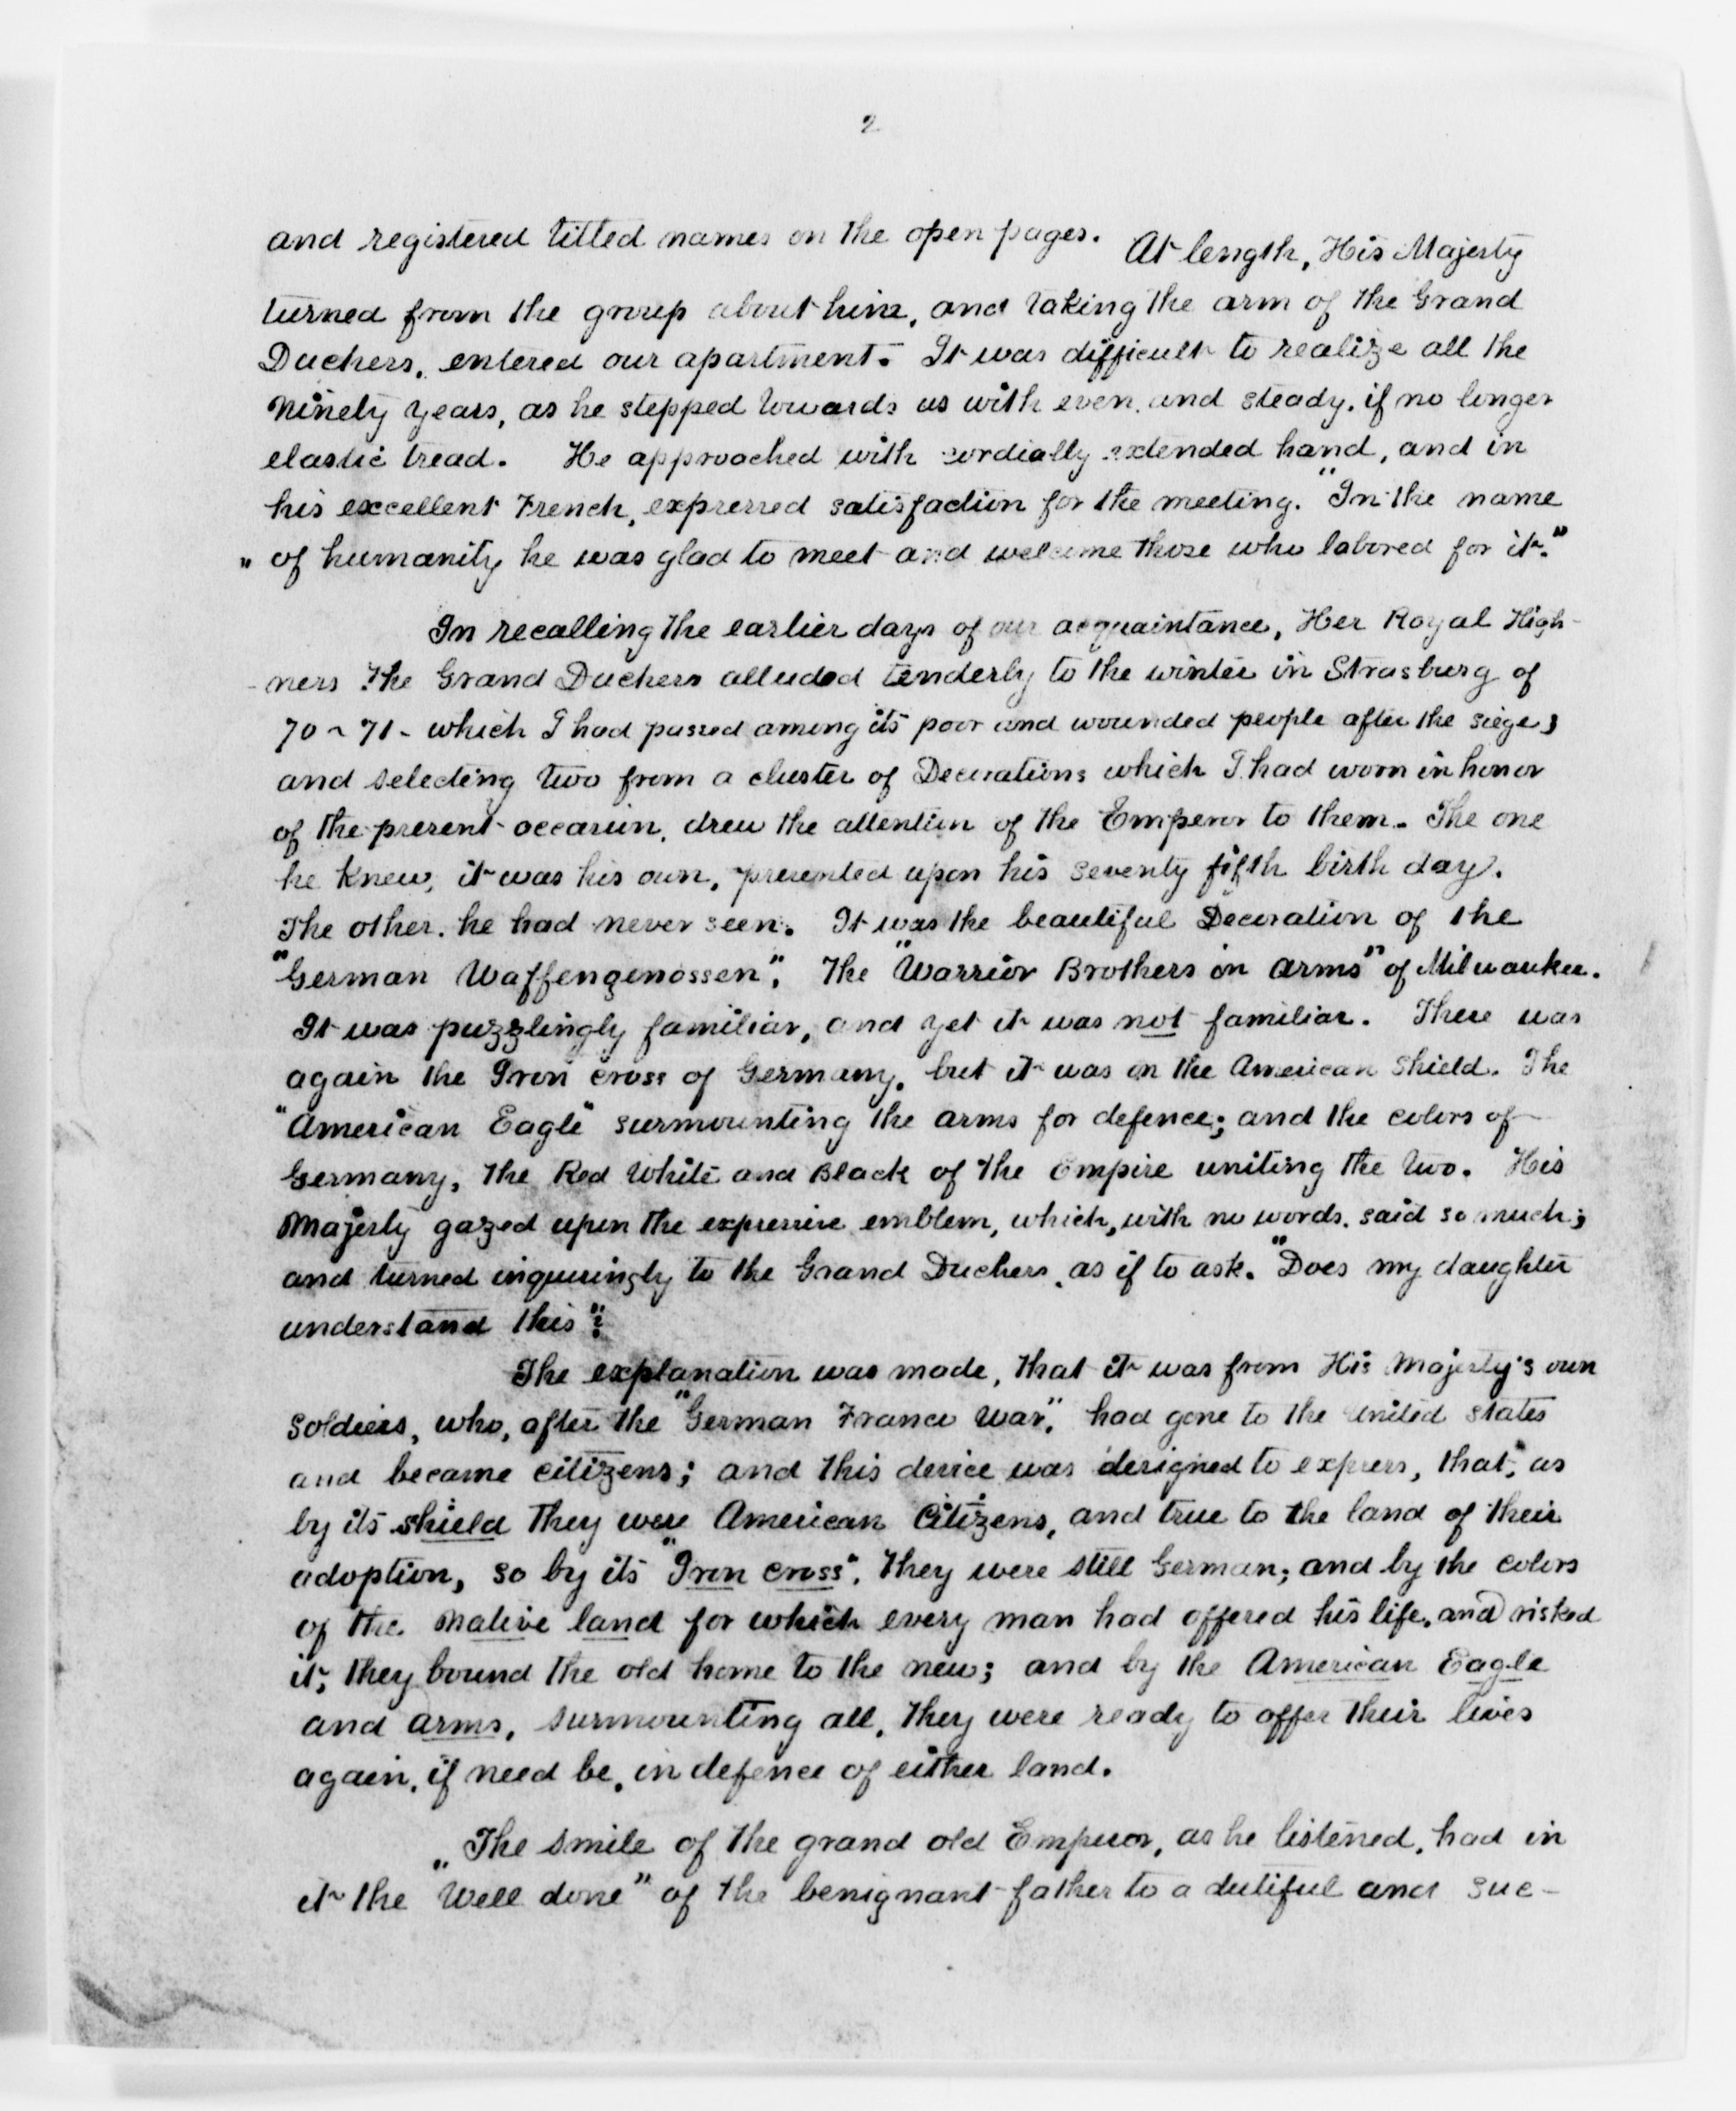 2
and registered titled names on the open pages. At length, His Majesty
turned from the group about him, and taking the arm of the Grand
Duchess, entered our apartment. It was difficult to realize all the
ninety years, as he stepped towards us with even and steady, if no longer
elastic tread. He approached with cordially extended hand, and in
his excellent French, expressed satisfaction for the meeting. "In the name
" of humanity he was glad to meet and welcome those who labored for it."
In recalling the earlier days of our acquaintance, Her Royal High-
-ness The Grand Duchess alluded tenderly to the winter in Strasburg of
70~71- which I had passed among its poor and wounded people after the siege;
and selecting two from a cluster of Decorations which I had worn in honor
of the present occasion, drew the attention of the Emperor to them. The one
he knew, it was his own, presented upon his seventy fifth birth day.
The other, he had never seen. It was the beautiful Decoration of the
"German Waffengenossen", The "Warrior Brothers in arms" of Milwaukee.
It was puzzlingly familiar, and yet it was not familiar. There was
again the Iron cross of Germany, but it was on the American Shield. The
"American Eagle" surmounting the arms for defence; and the colors of
Germany, the Red White and Black of the Empire uniting the two. His
Majesty gazed upon the expressive emblem, which, with no words, said so much;
and turned inquiringly to the Grand Duchess, as if to ask. "Does my daughter
understand this"?
The explanation was made, that it was from His Majesty's own
soldiers, who, after the "German Franco War", had gone to the United States
and became citizens; and this device was designed to express, that, as
by its shield they were American Citizens, and true to the land of their
adoption, so by its "Iron Cross", they were still German; and by the colors
of the native land for which every man had offered his life, and risked
it, they bound the old home to the new; and by the American Eagle
and arms, surmounting all, they were ready to offer their lives
again, if need be, in defence of either land.
The smile of the grand old Emperor, as he listened, had in
it the "Well done" of the benignant father to a dutiful and suc-